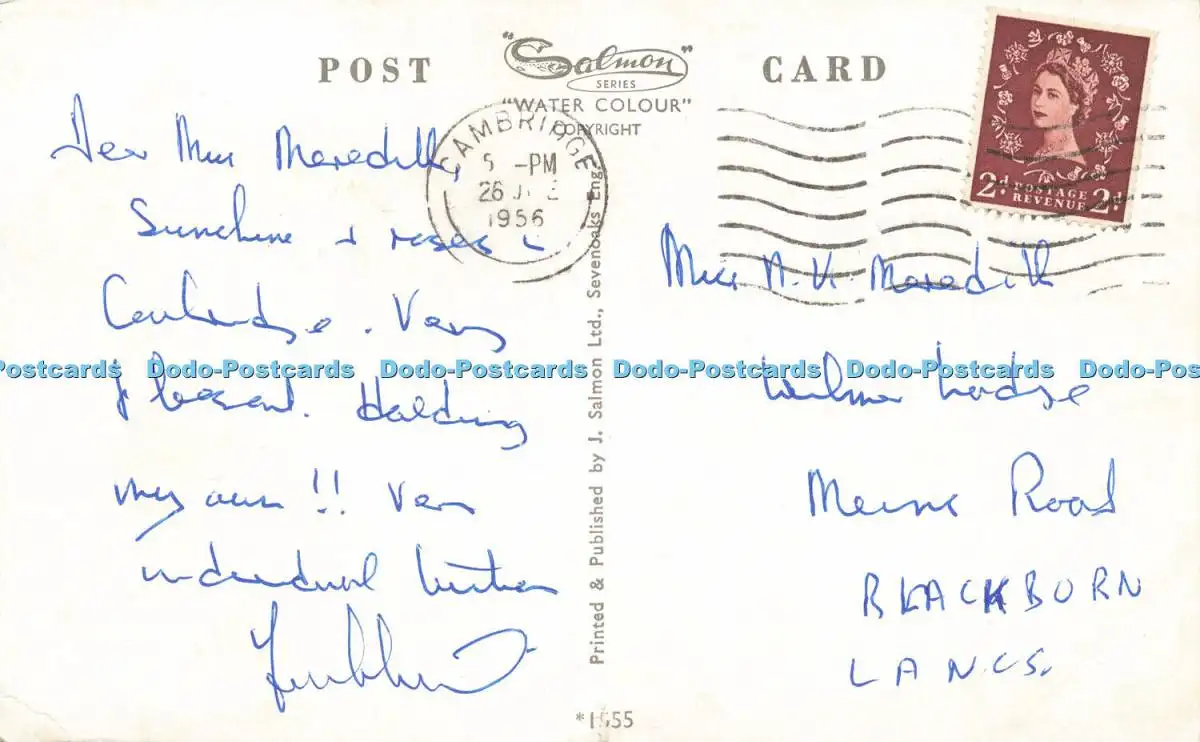 POST "Salmon" CARD
SERIES
"WATER COLOUR"
COPYRIGHT
CAMBRIDGE
5 -PM
26
1956
2d POSTAGE 2d
REVENUE
Dear Miss Meredith,
Sunshine + roses in
Cambridge. Very
pleasant. Holding
my own!! Very
individual tuition
Miss A. K. Meredith
Lodge
Road
BLACKBURN
LANCS.
Printed & Published by J. Salmon Ltd., Sevenoaks Eng.
*1555
Postcards Dodo-Postcards Dodo-Postcards Dodo-Postcards Dodo-Postcards Dodo-Postcards